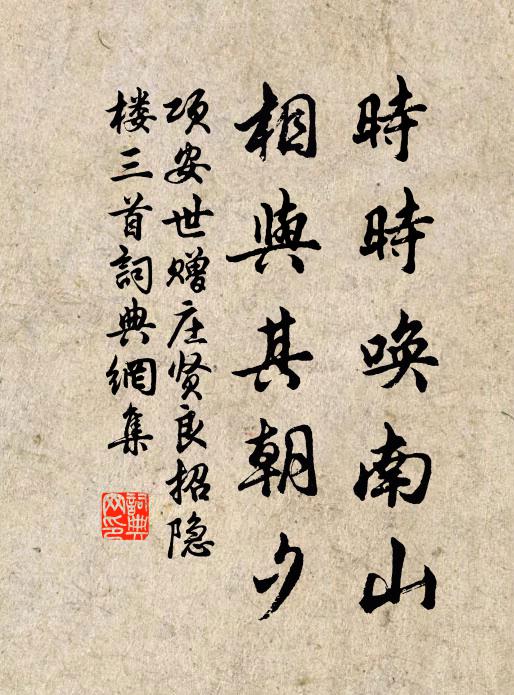 時時唤南山
相與其朝夕
项安世赠庄贤良招隐
楼三首詞典網集
詞典网印